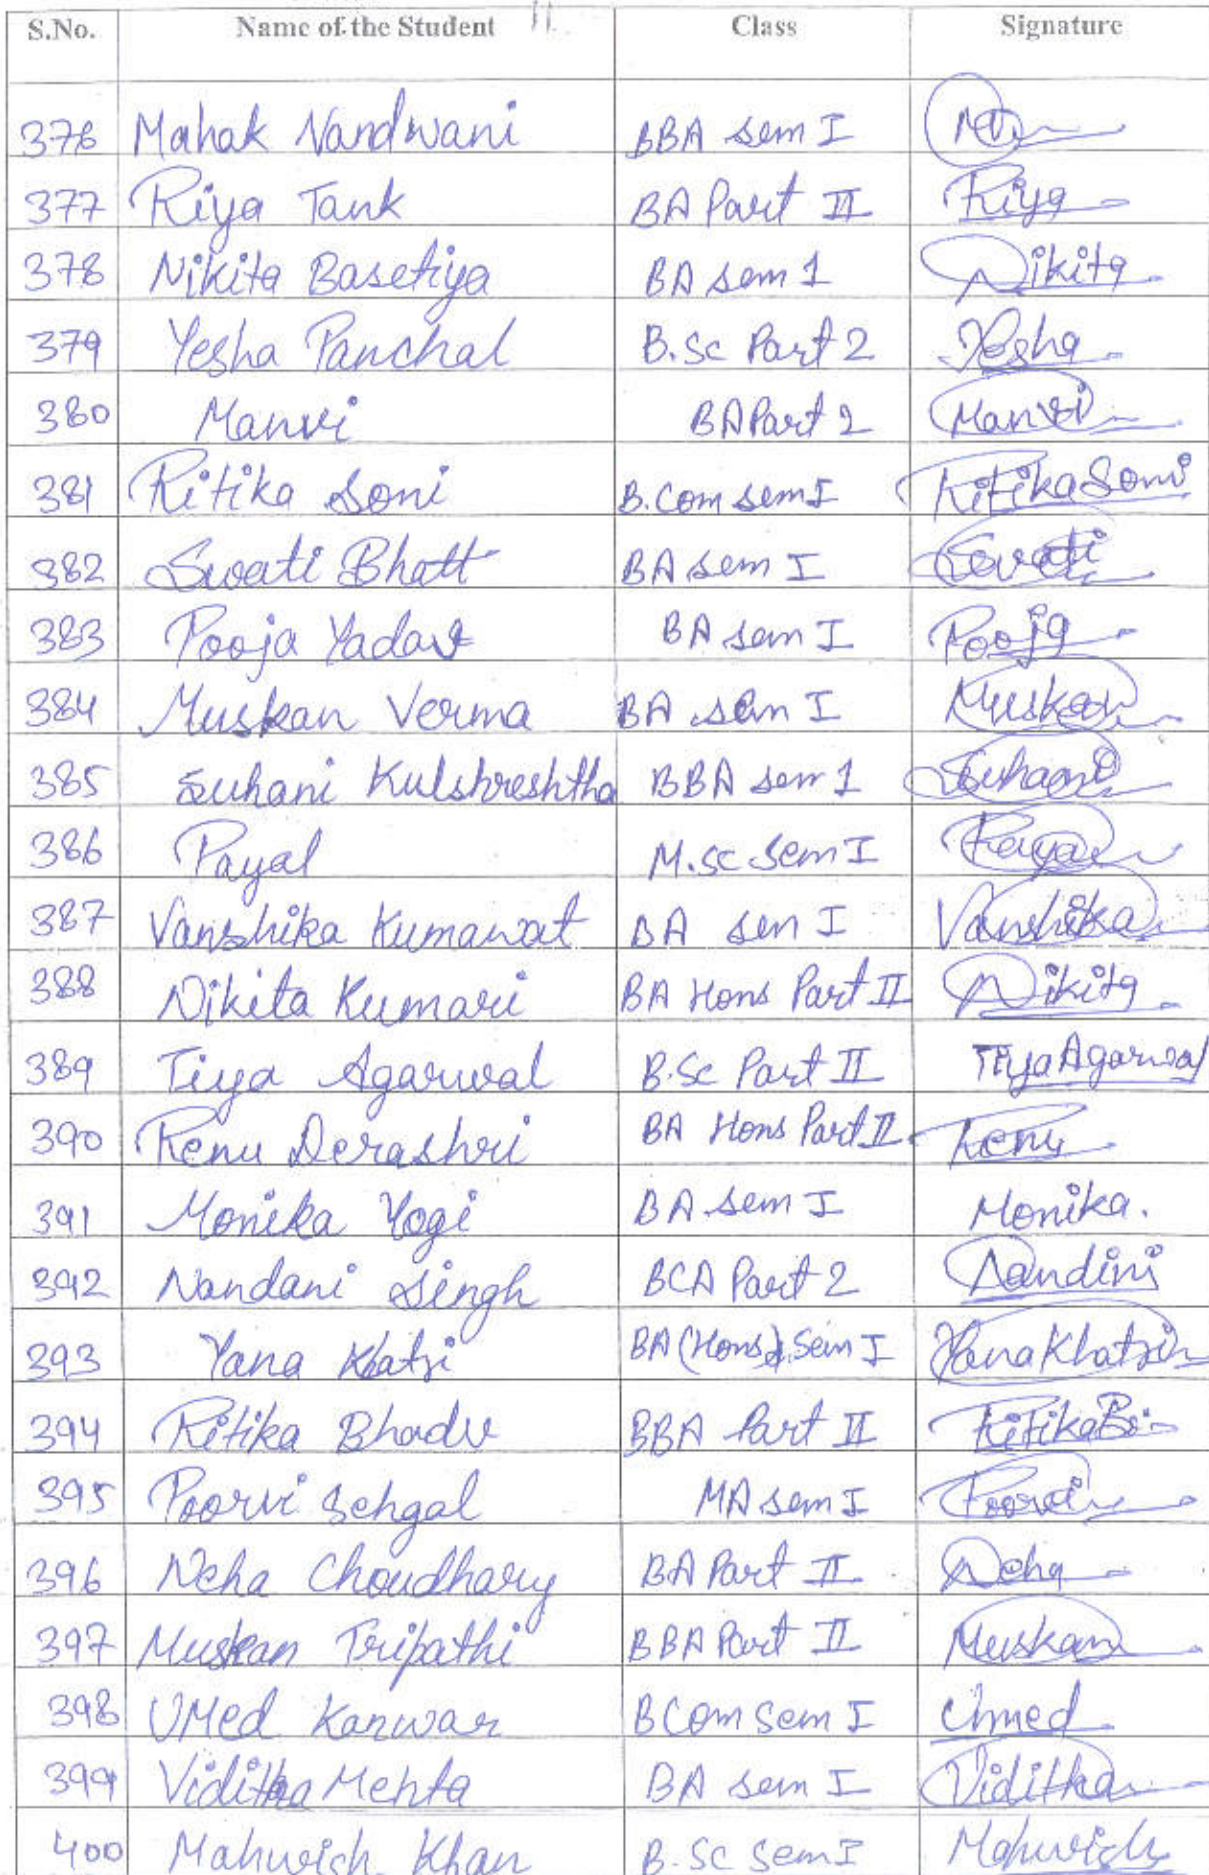 S.No. Name of the Student Class Signature
376 Mahak Nandwani BBA sem I
377 Riya Tank BA Part II Riya
378 Nikita Basetiya BA sem 1 Nikita
379 Yesha Panchal B.Sc Part 2 Yesha
380 Manvi BA Part 2 Manvi
381 Ritika Soni B.Com sem I Ritika Soni
382 Swati Bhatt BA sem I Swati
383 Pooja Yadav BA sem I Pooja
384 Muskan Verma BA sem I Muskan
385 Suhani Kulshreshtha BBA sem 1 Suhani
386 Payal M.Sc Sem I Payal
387 Vanshika Kumawat BA sem I Vanshika
388 Nikita Kumari BA Hons Part II Nikita
389 Tiya Agarwal B.Sc Part II Tiya Agarwal
390 Renu Derashri BA Hons Part II Renu
391 Monika Yogi BA sem I Monika.
392 Nandani Singh BCA Part 2 Nandini
393 Yana Khatri BA (Hons) Sem I Yana Khatri
394 Ritika Bhadu BBA Part II Ritika
395 Poorvi Sehgal MA sem I Poorvi
396 Neha Choudhary BA Part II Neha
397 Muskan Tripathi BBA Part II Muskan
398 UMed Kanwar BCom Sem I Umed
399 Viditha Mehta BA sem I Viditha
400 Mahwish Khan B.Sc Sem I Mahwish